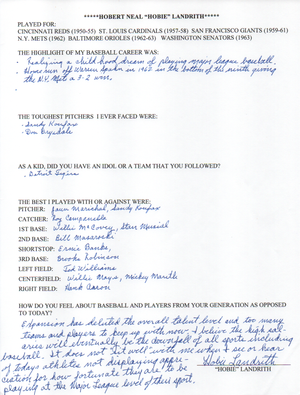 *****HOBERT NEAL "HOBIE" LANDRITH*****
PLAYED FOR:
CINCINNATI REDS (1950-55) ST. LOUIS CARDINALS (1957-58) SAN FRANCISCO GIANTS (1959-61)
N.Y. METS (1962) BALTIMORE ORIOLES (1962-63) WASHINGTON SENATORS (1963)
THE HIGHLIGHT OF MY BASEBALL CAREER WAS:
Realizing a child hood dream of playing major league baseball.
Home run off Warren Spahn in 1962 in the bottom of the ninth giving
the N.Y. Mets a 3-2 win.
THE TOUGHEST PITCHERS I EVER FACED WERE:
Sandy Koufax
Don Drysdale
AS A KID, DID YOU HAVE AN IDOL OR A TEAM THAT YOU FOLLOWED?
Detroit Tigers
THE BEST I PLAYED WITH OR AGAINST WERE:
PITCHER: Juan Marichal, Sandy Koufax
CATCHER: Roy Campanella
1ST BASE: Willie McCovey, Stan Musial
2ND BASE: Bill Mazeroski
SHORTSTOP: Ernie Banks,
3RD BASE: Brooks Robinson
LEFT FIELD: Ted Williams
CENTERFIELD: Willie Mays, Mickey Mantle
RIGHT FIELD: Hank Aaron
HOW DO YOU FEEL ABOUT BASEBALL AND PLAYERS FROM YOUR GENERATION AS OPPOSED
TO TODAY?
Expansion has diluted the overall talent level and too many
teams and players to keep up with now. I believe the high sal-
aries will eventually be the downfall of all sports including
baseball. It does not "sit well" with me when I see or hear
of todays athletes not displaying appre-
ciation for how fortunate they are to be
playing at the Major League level of their sport.
Hobie Landrith
"HOBIE" LANDRITH